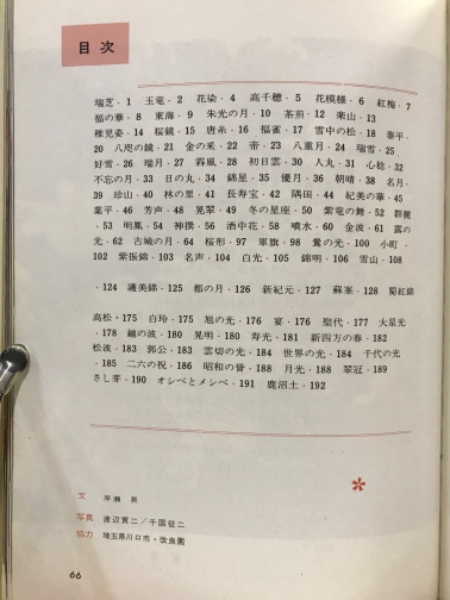 目次
瑞芝・1 玉竜・2 花染・4 高千穂・5 花模様・6 紅梅・7
福の華・8 東海・9 朱光の月・10 茶煎・12 楽山・13
稚児姿・14 桜鏡・15 唐糸・16 福雀・17 雪中の松・18 泰平・
20 八咫の鏡・21 金の釆・22 帝・23 八重月・24 瑞雪・25
好雪・26 瑞月・27 霧風・28 初日雲・30 人丸・31 心越・32
不忘の月・33 日の丸・34 錦星・35 優月・36 朝晴・38 名月・
39 珍山・40 林の里・41 長寿宝・42 隅田・44 紀美の華・45
業平・46 芳声・48 晃翠・49 冬の星座・50 紫竜の舞・52 群麗
・53 明鳳・54 神撰・56 酒中花・58 噴水・60 金波・61 露の
光・62 古城の月・64 桜形・97 軍旗・98 鶯の光・100 小町・
102 紫振錦・103 名声・104 白光・105 錦明・106 雪山・108
・124 護美錦・125 都の月・126 新紀元・127 蘇峯・128 蜀紅錦
高松・175 白玲・175 旭の光・176 宴・176 聖代・177 大星光
・178 越の波・180 晃明・180 寿光・181 新四方の春・182
松波・183 郭公・183 雲切の光・184 世界の光・184 千代の光
・185 二六の祝・186 昭和の誉・188 月光・188 翠冠・189
さし芽・190 オシベとメシベ・191 鹿沼土・192
文
写真 渡辺貢二/千国征二
協力 埼玉県川口市・改良園
66